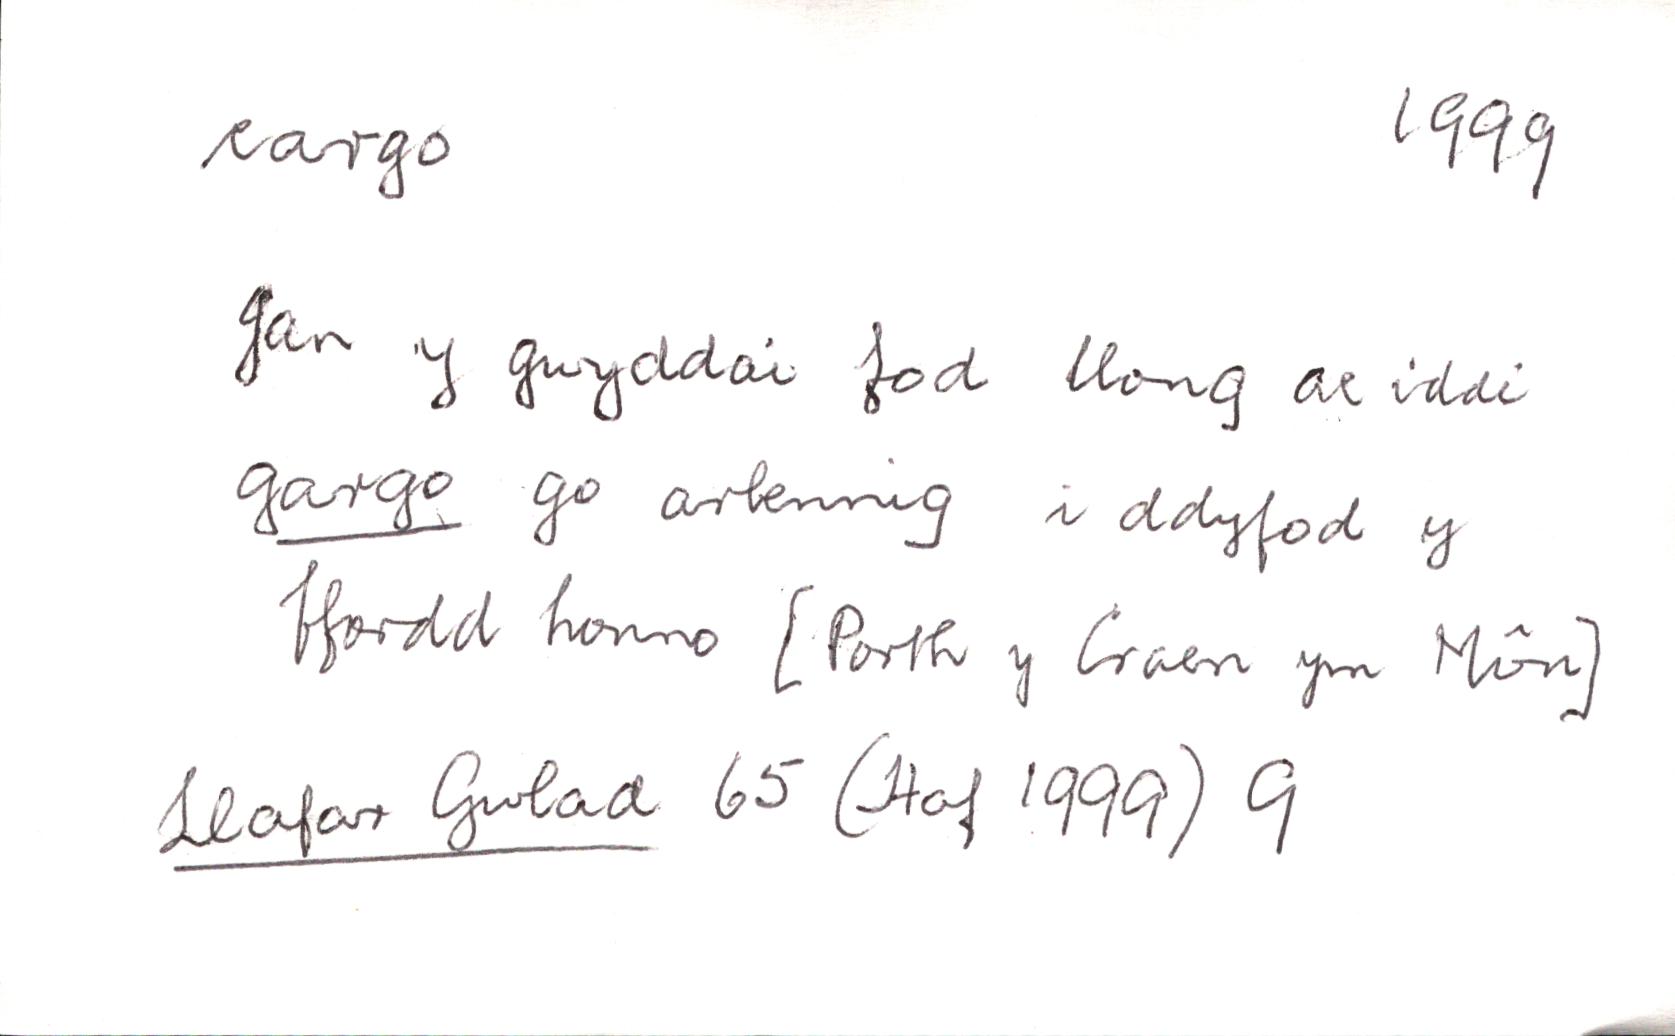 cargo 1999
Gan y gwyddai fod llong ac iddi
gargo go arbennig i ddyfod y
ffordd honno [Porth y Craen ym Môn]
Llafar Gwlad 65 (Haf 1999) 9